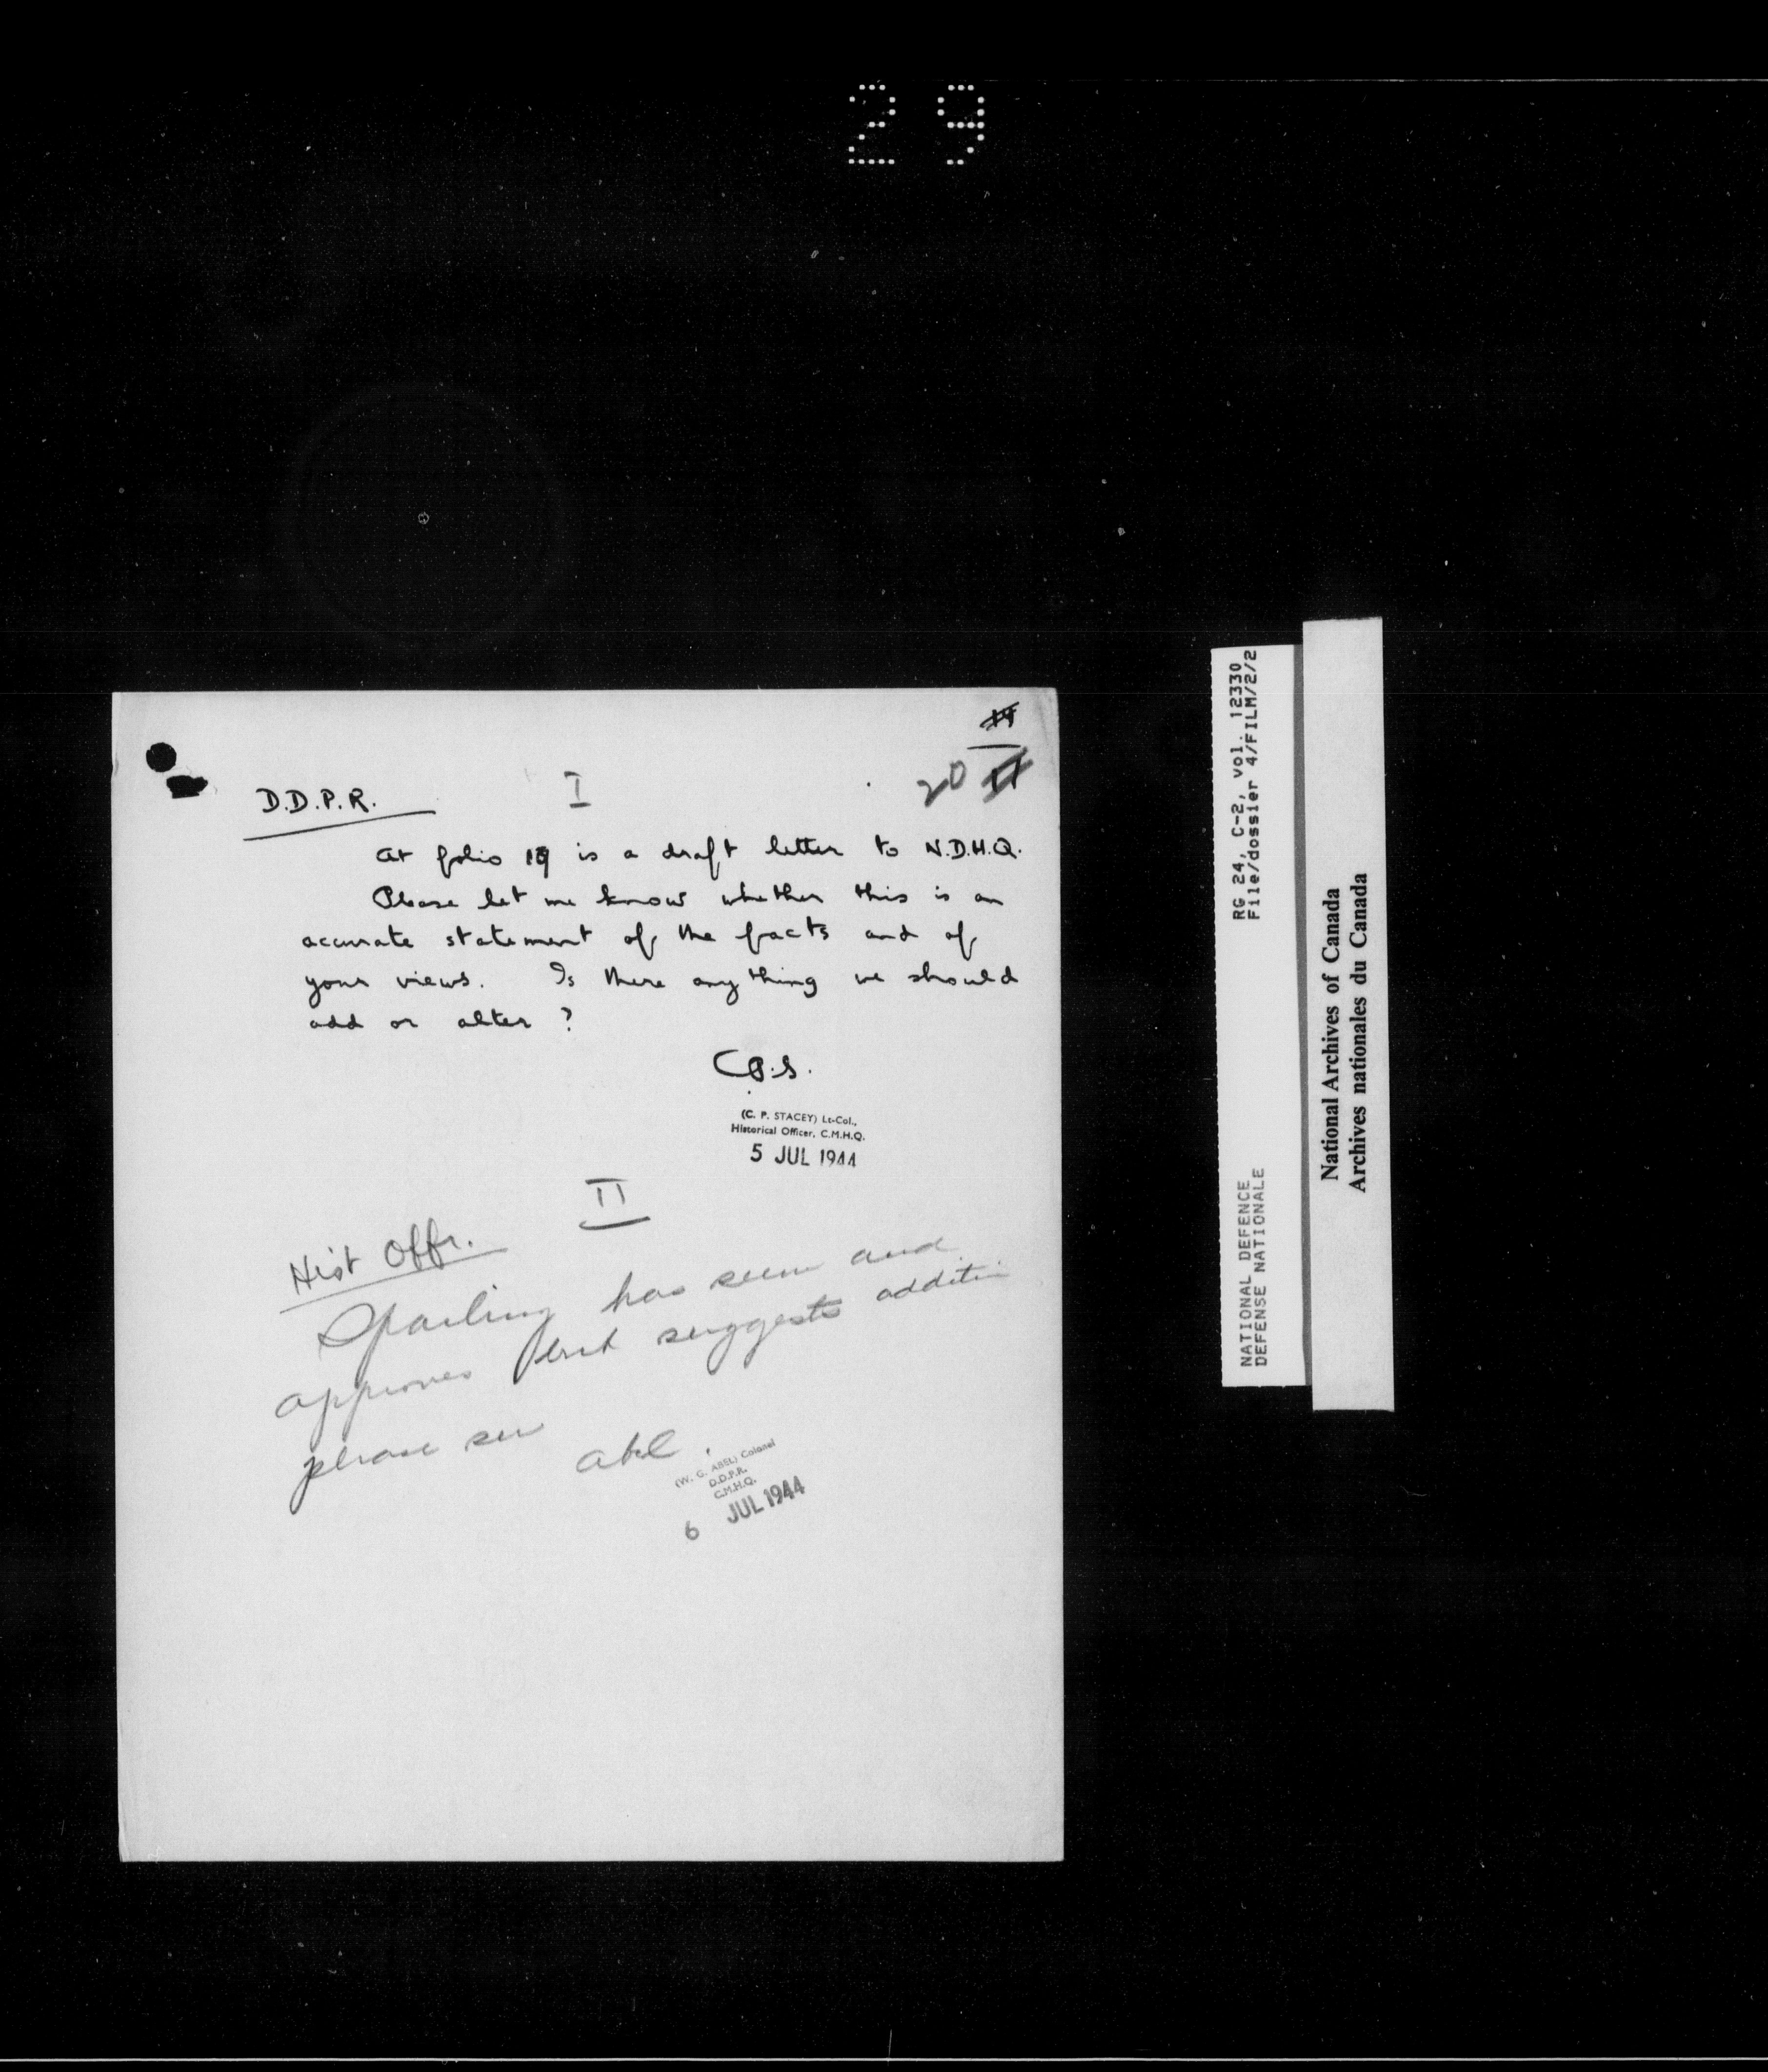 29
20
D.D.P.R.
I
At folio 19 is a draft letter to N.D.H.Q.
Please let me know whether this is an
accurate statement of the facts and of
your views. Is there anything we should
add or alter?
C.P.S.
(C. P. STACEY) Lt-Col.,
Historical Officer, C.M.H.Q.
5 JUL 1944
II
Hist Offr.
Sparling has seen and
approves but suggests addition
please see
Abel
(W. G. ABEL) Colonel
D.D.P.R.
C.M.H.Q.
6 JUL 1944
RG 24, C-2, vol. 12330
File/dossier 4/FILM/2/2
NATIONAL DEFENCE
DEFENSE NATIONALE
National Archives of Canada
Archives nationales du Canada